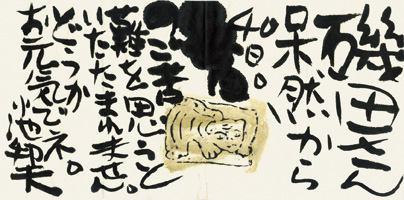 磯田さん
呆然から
40日。
ご苦
難を思うと
いたたまれません。
どうか
お元気でネ。
池邦夫